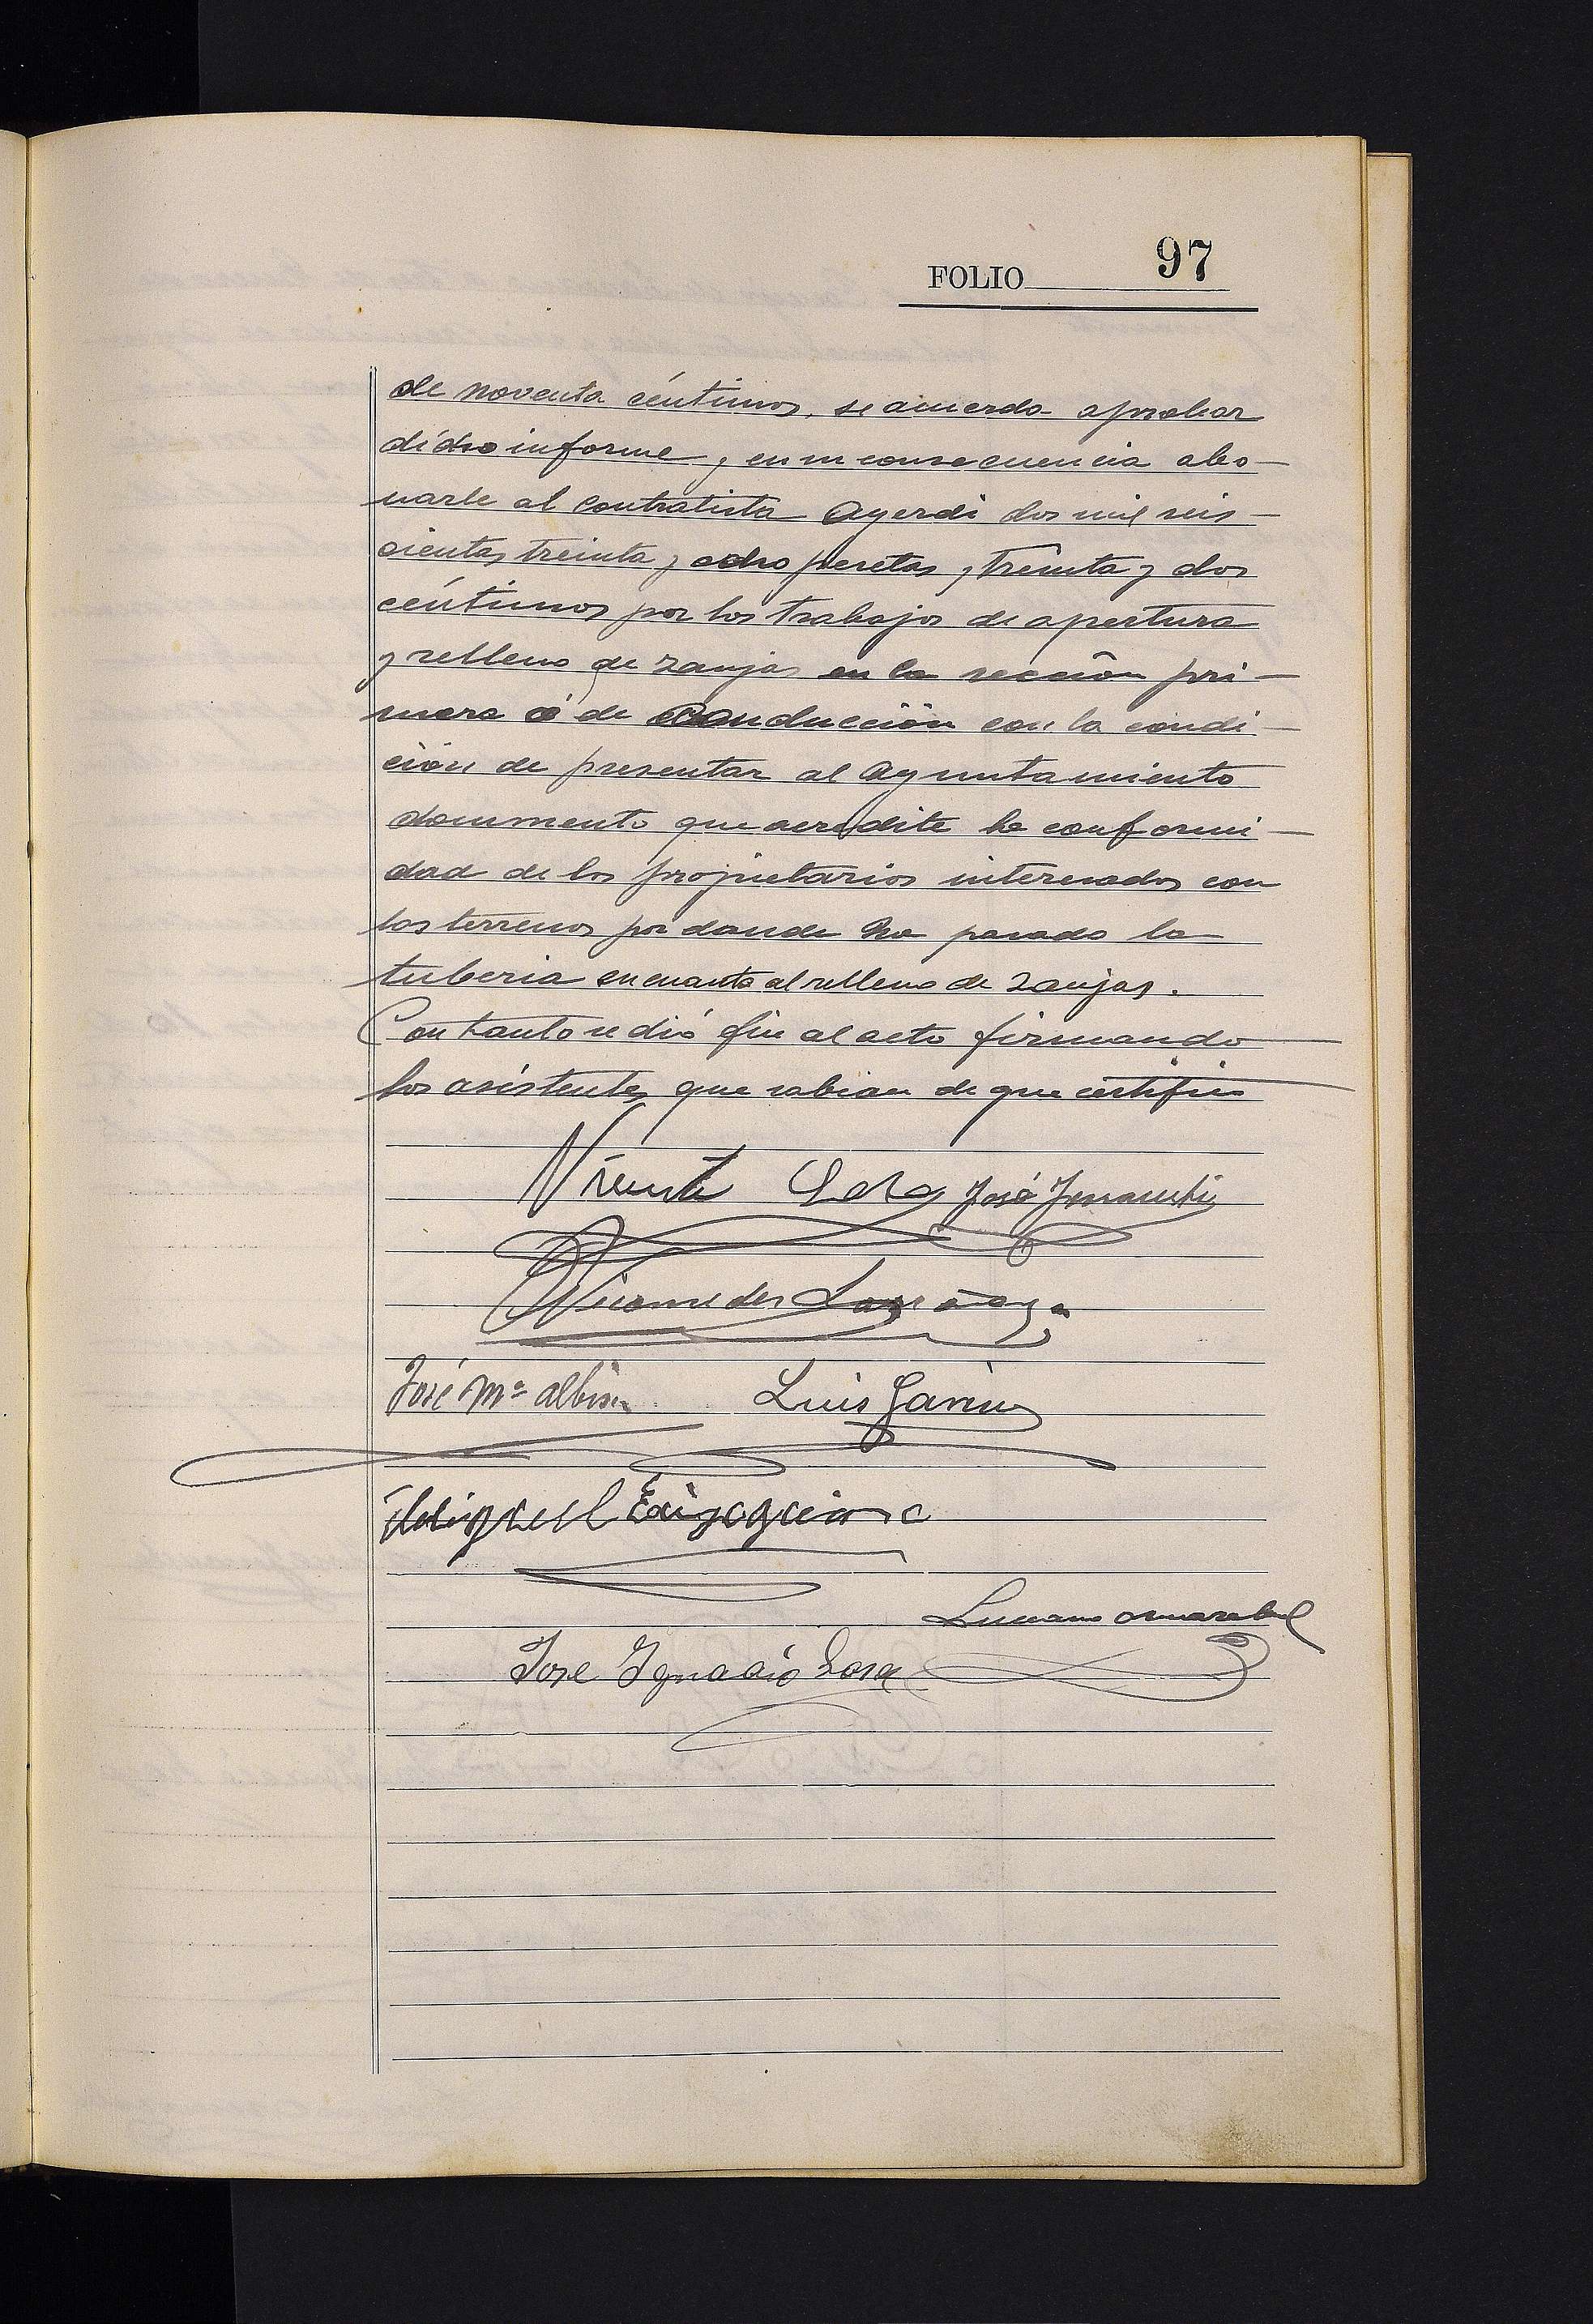 FOLIO 97
de noventa céntimos, se acuerda aprobar
dicho informe y en su consecuencia abo-
narle al contratista Ayerdi dos mil seis-
cientas treinta y ocho pesetas y treinta y dos
céntimos por los trabajos de apertura
y relleno de zanjas en la sección pri-
mera ó de conducción con la condi-
ción de presentar al Ayuntamiento
documento que acredite la conformi-
dad de los propietarios interesados con
los terrenos por donde ha pasado la
tuberia en cuanto al relleno de zanjas.
Con tanto se dió fin al acto firmando
los asistentes que sabian de que certifico
Vicente José
Nicomedes
José Mª Luis
Miguel
Luciano
Jose Ignacio Lasa